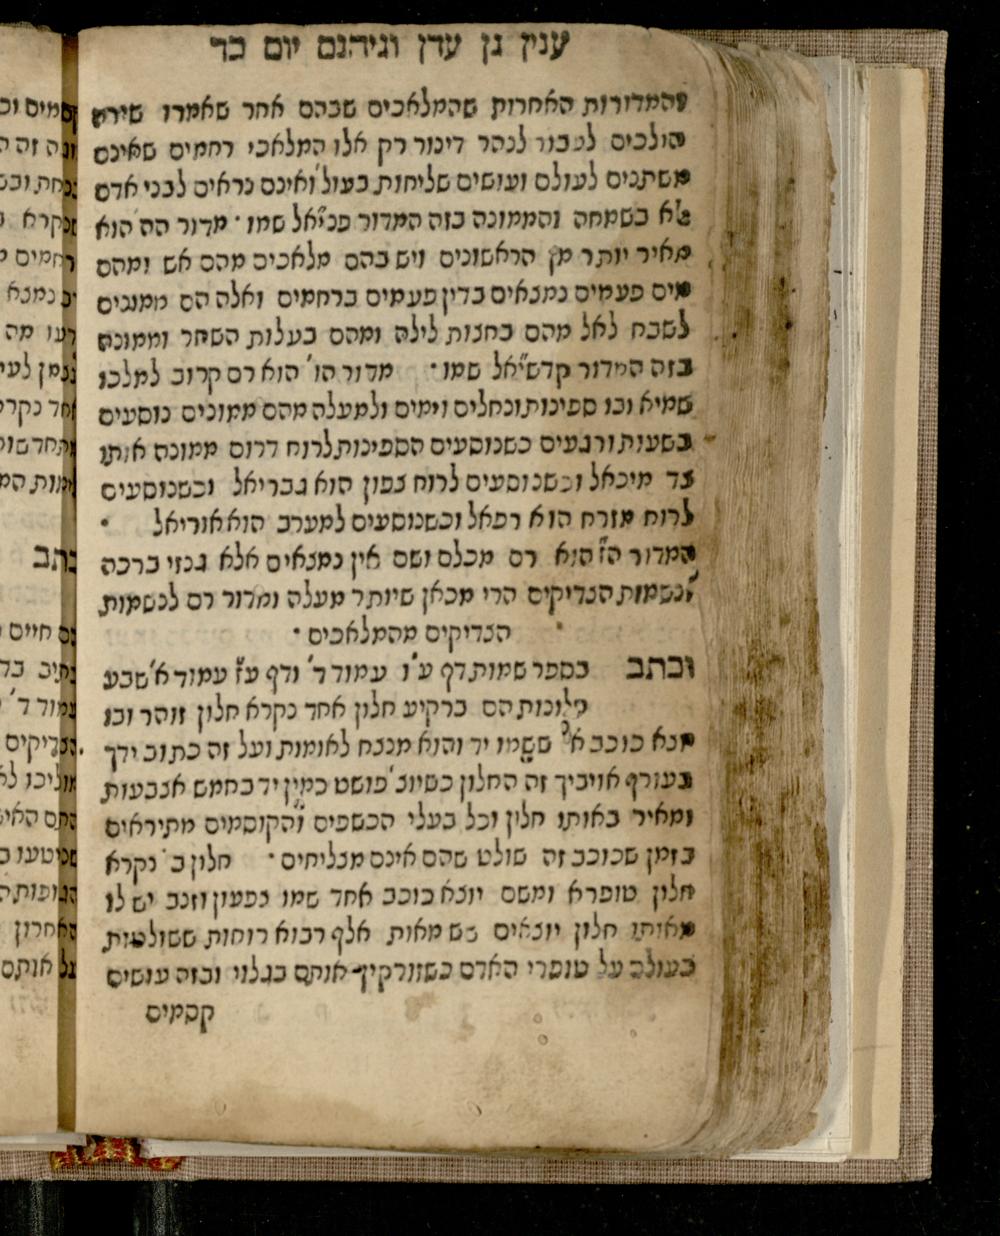 ענין גן עדן וגיהנם יום כד
והמדורות האחרות שהמלאכים שבהם אחר שאמרו שירה
הולכים לטבור לנהר דינור רק אלו המלאכי רחמים שאינם
משתנים לעולם ועושים שליחות בעול' ואינם נראים לבני אדם
אלא בשמחה והממונה בזה המדור פני"אל שמו · מדור הה הוא
מאיר יותר מן הראשונים ויש בהם מלאכים מהם אש ומהם
מים פעמים נמצאים בדין פעמים ברחמים ואלה הם ממונים
לשבח לאל מהם בחצות לילה ומהם בעלות השחר וממונה
בזה המדור קדשי"אל שמו · מדור הו' הוא רם קרוב למלכו
שמיא ובו ספינות ונחלים וימים ולמעלה מהם ממונים נוסעים
בשעות ורגעים כשנוסעים הספינות לרוח דרום ממונה אותו
צד מיכאל וכשנוסעים לרוח צפון הוא גבריאל וכשנוסעים
לרוח מזרח הוא רפאל וכשנוסעים למערב הוא אוריאל ·
המדור הז' הוא רם מכלם ושם אין נמצאים אלא גנזי ברכה
לנשמות הצדיקים הרי מכאן שיותר מעלה ומדור רם לנשמות
הצדיקים מהמלאכים ·
וכתב בספר שמות דף ע"ו עמוד ד' ודף ע"ז עמוד א' שבע
חלונות הם ברקיע חלון אחד נקרא חלון זוהר ובו
יוצא כוכב א' ששמו יד והוא מנצח לאומות ועל זה כתוב ידך
בעורף אויביך זה החלון כשיוצ' פושט כמין יד בחמש אצבעות
ומאיר באותו חלון וכל בעלי הכשפים והקוסמים מתיראים
בזמן שכוכב זה שולט שהם אינם מצליחים · חלון ב' נקרא
חלון טופרא ומשם יוצא כוכב אחד שמו צפעון וזנב יש לו
מאותו חלון יוצאים שש מאות אלף רבוא רוחות ששולטות
בעולם על טופרי האדם כשזורקין אותם בגלוי ובזה עושים
קסמים